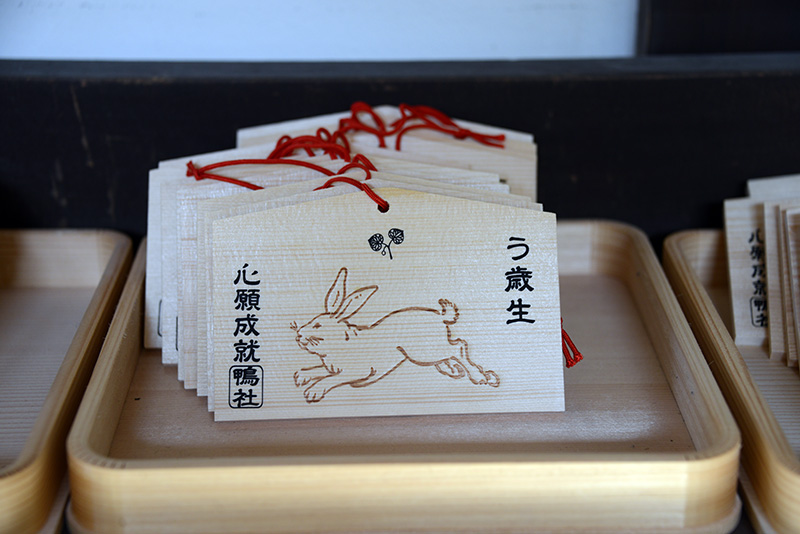 う歳生
心願成就
鴨社
心願成就
鴨